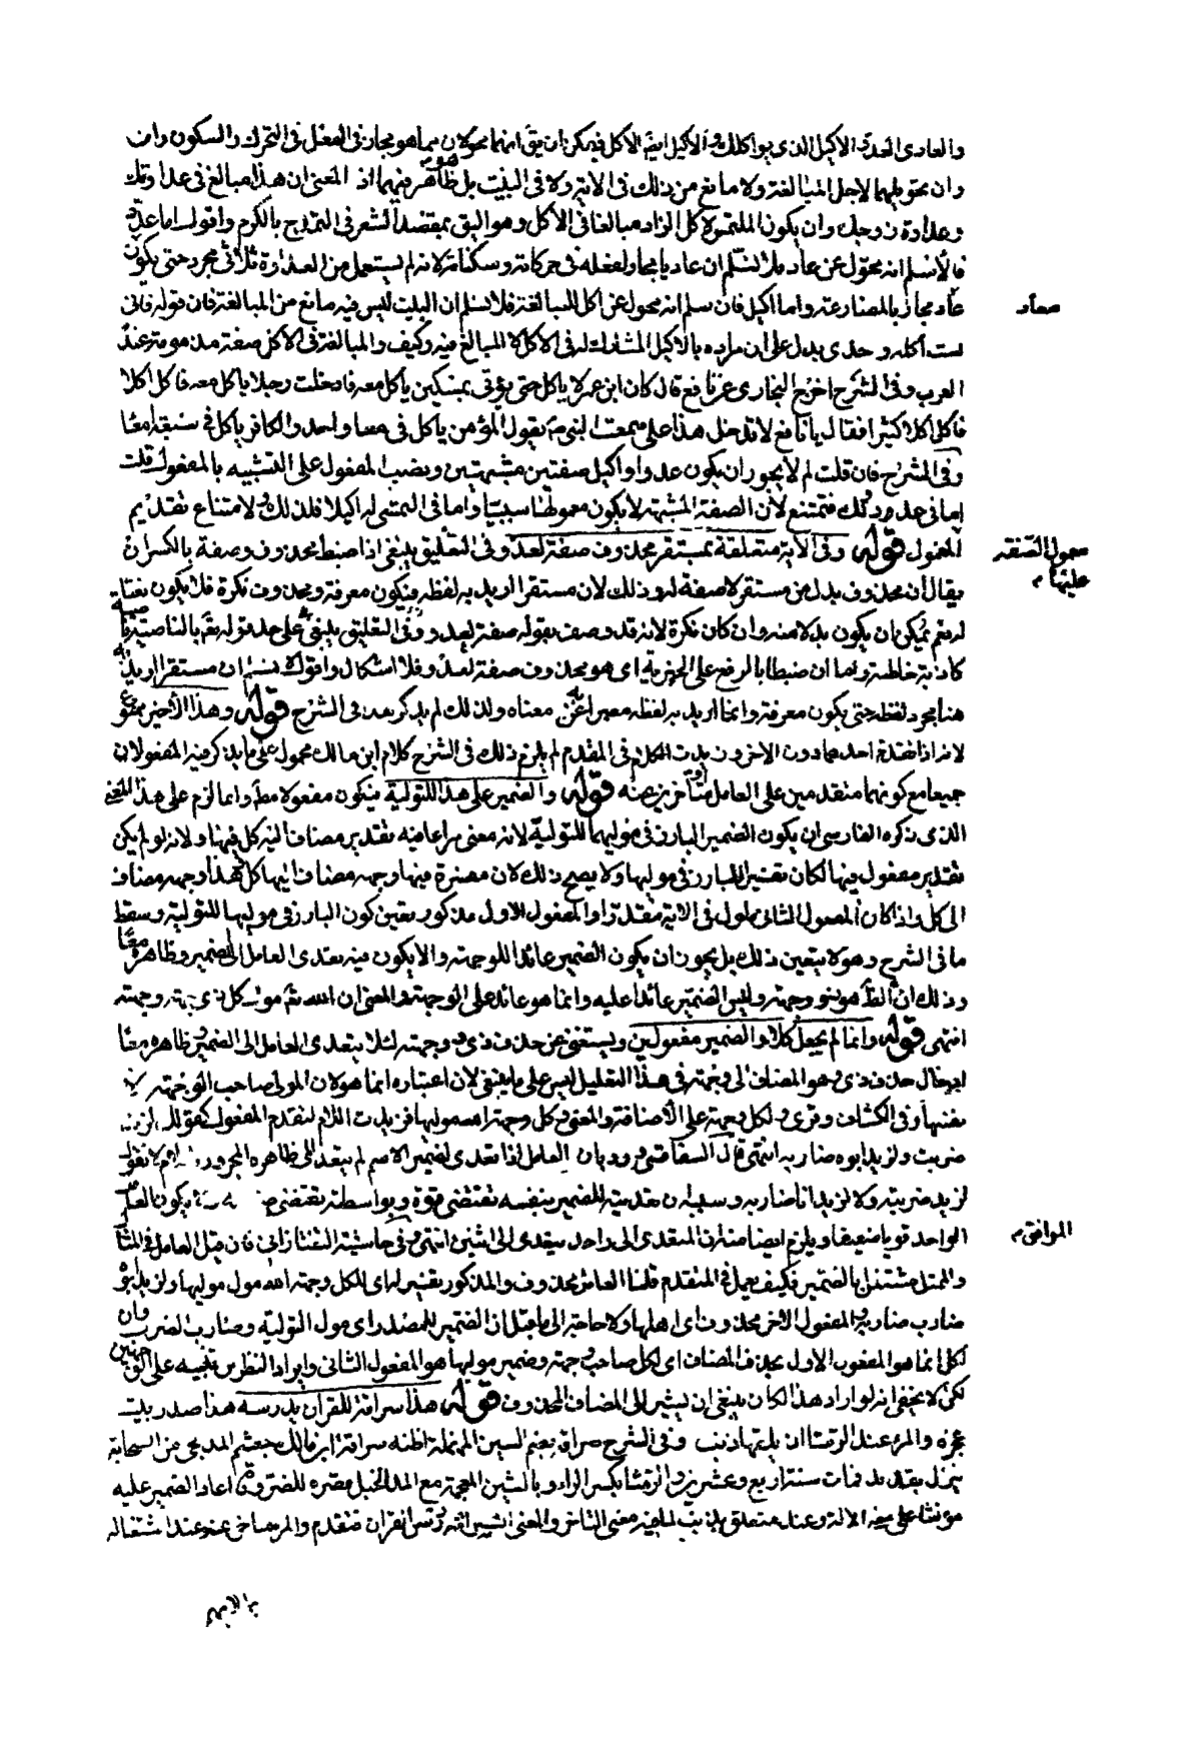 والعادى العدو الاكيل الذى يواكلك والاكيل ايضا الاكل فيمكن ان يق انهما محولان مما هو مجاز فى الفعل فى التحرك والسكون وان
وان تحويلهما لاجل المبالغة ولا مانع من ذلك فى الاية ولا فى البيت بل ظاهر فيهما اذ المعنى ان هذا مبالغ فى عداوتك
وعداوة زوجك وان يكون الملتمس لاكل الزاد مبالغا فى الاكل وهو اليق بمقصد الشعر فى التمدح بالكرم واقول اما عدو
فلا نسلم انه محول عن عاد بل لا نسلم ان عاديا مجاز لفعله فى حركاته وسكناته لانه لم يستعمل من العداوة ثلاثى مجرد حتى يكون
عاد مجاز بالمضارعة واما اكيل فان سلم انه محول عن اكل للمبالغة فلا نسلم ان البيت ليس فيه مانع من المبالغة فان قوله فانى
لست اكله وحدى يدل على ان مراده بالاكيل المشارك له فى الاكل لا المبالغ فيه وكيف والمبالغة فى الاكل صفة مذمومة عند
العرب وفى الشرح اخرج البخارى عن نافع قال كان ابن عمر لا ياكل حتى يؤتى بمسكين ياكل معه فادخلت رجلا ياكل معه فاكل اكلا
فاكل اكلا كثيرا فقال يا نافع لا تدخل هذا على سمعت النبى يقول المؤمن ياكل فى معا واحد والكافر ياكل فى سبعة امعا
وفى الشرح فان قلت لم لا يجوز ان يكون عدوا واكيل صفتين مشبهتين ونصب المفعول على التشبيه بالمفعول قلت
اما فى عدو لك فممتنع لان الصفة المشبهة لا يكون معمولها الا سببيا واما فى التمسى له اكيلا فلذلك ولامتناع تقديم
المعمول قوله وفى الاية متعلقة بمستقر محذوف صفة لعدو وفى التعليق ينبغى اذا ضبط محذوف وصفة بالكسر ان
يقال ان محذوف بدل من مستقر لا صفة له وذلك لان مستقر اريد به لفظه فيكون معرفة ومحذوف نكرة فلا يكون نعتا
له نعم يمكن ان يكون بدلا منه وان كان نكرة لانه قد وصف بقوله صفة لعدو وفى التعليق ينبغى على حد قوله تع بالناصية ناصية
كاذبة خاطئة واما ان ضبطا بالرفع على الخبرية اى هو محذوف صفة لعدو فلا اشكال واقول لا نسلم ان مستقر اريد به
هنا مجرد لفظه حتى يكون معرفة وانما اريد به لفظه معبرا عن معناه ولذلك لم يذكر بعد فى الشرح قوله وهذا الاخير ممنوع
لانه اذا تقدم احدهما دون الاخر وزيدت اللام فى المقدم لم يلزم ذلك فى الشرح كلام ابن مالك محمول على ما يذكر فيه المفعولان
جميعا مع كونهما متقدمين على العامل او متاخرين عنه قوله والضمير على هذا للتولية فيكون مفعولا مطلقا وانما لزم على هذا المعنى
الذى ذكره الفارسى ان يكون الضمير البارز فى موليها للتولية لانه معنى يراعا فيه تقدير مضاف اليه كل فيها ولانه لو لم يكن
تقدير مفعول فيها لكان تفسير للبارز فى موليها ولا يصح ذلك لان مفسره فيها وجهة مضاف اليها كل وهذا وجهه مضاف
الى كل واذا كان المعمول الثانى لمول فى الاية مقدرا والمفعول الاول مذكور تعين كون البارز فى موليها للتولية وسقط
ما فى الشرح وهو لا يتعين ذلك بل يجوز ان يكون الضمير عائدا للوجهة ولا يكون فيه تعدى العامل الى الضمير وظاهره معا
وذلك ان الظ هو ذو وجهة وليس الضمير عائدا عليه وانما هو عائد على الوجهة والمعنى ان الله تع مول كل ذى جهة وجهته
انتهى قوله وانما لم يجعل كلا والضمير مفعولين ويستغنى عن حذف ذى ووجهة لئلا يتعدى العامل الى الضمير وظاهره معا
ادخال حذف ذى وهو المضاف الى وجهة فى هذا التعليل ليس على ما ينبغى لان اعتباره انما هو لان المولى صاحب الوجهة
نفسها وفى الكشاف وقرئ ولكل وجهة على الاضافة والمعنى وكل وجهة الله موليها فزيدت اللام لتقدم المفعول كقولك لزيد
ضربت ولزيد ابوه ضاربه انتهى قال السفاقسى ورد بان العامل اذا تعدى لضمير الاسم لم يتعد الى ظاهره المجرور باللام لا تقول
لزيد ضربته ولا لزيد انا ضاربه وسببه ان تعديته للضمير بنفسه تقتضى قوة وبواسطة تقتضى ضعفه يكون العامل
الواحد قويا ضعيفا ويلزم ايضا صارف المتعدى الى واحد يتعدى الى اثنين انتهى وفى حاشية التفتازانى فان قيل العامل فى المثال
والممثل مشتغل بالضمير فكيف يعمل فى المتقدم قلنا العامل محذوف والمذكور تفسير له اى لكل وجهة الله مول موليها ولزيد ابوه
ضارب ضاربه والمفعول الاخر محذوف اى اهلها ولا حاجة الى ما قيل ان الضمير للمصدر اى مول التولية وضارب الضرب وان
لكل انما هو المفعول الاول بحذف المضاف اى لكل صاحب وجهة وضمير موليها هو المفعول الثانى وايراد النظر بن تنبيه على الوجهين
لكن لا يخفى انه لو اراد هذا لكان ينبغى ان يشير الى المضاف المحذوف قوله هذا سراقة للقران يدرسه هذا صدر بيت
عجزه والمرء عند الرشا ان يلقها ذيب وفى الشرح سراقة بضم السين المهملة اظنه سراقة ابن مالك بن جعشم المدلجى من الصحابة
ينزل بقديد مات سنة اربع وعشرين والرشا بكسر الراء وبالشين المعجمة مع المد الحبل قصره للضرورة اعاد الضمير عليه
مؤنثا على معنى الالة وعند متعلق بذيب لما فيه معنى التاخر والمعنى ان سراقة درس القران فتقدم والمرء متاخر عند اشتغاله
صعاد
معمول الصفة
عليها م
الموافق م